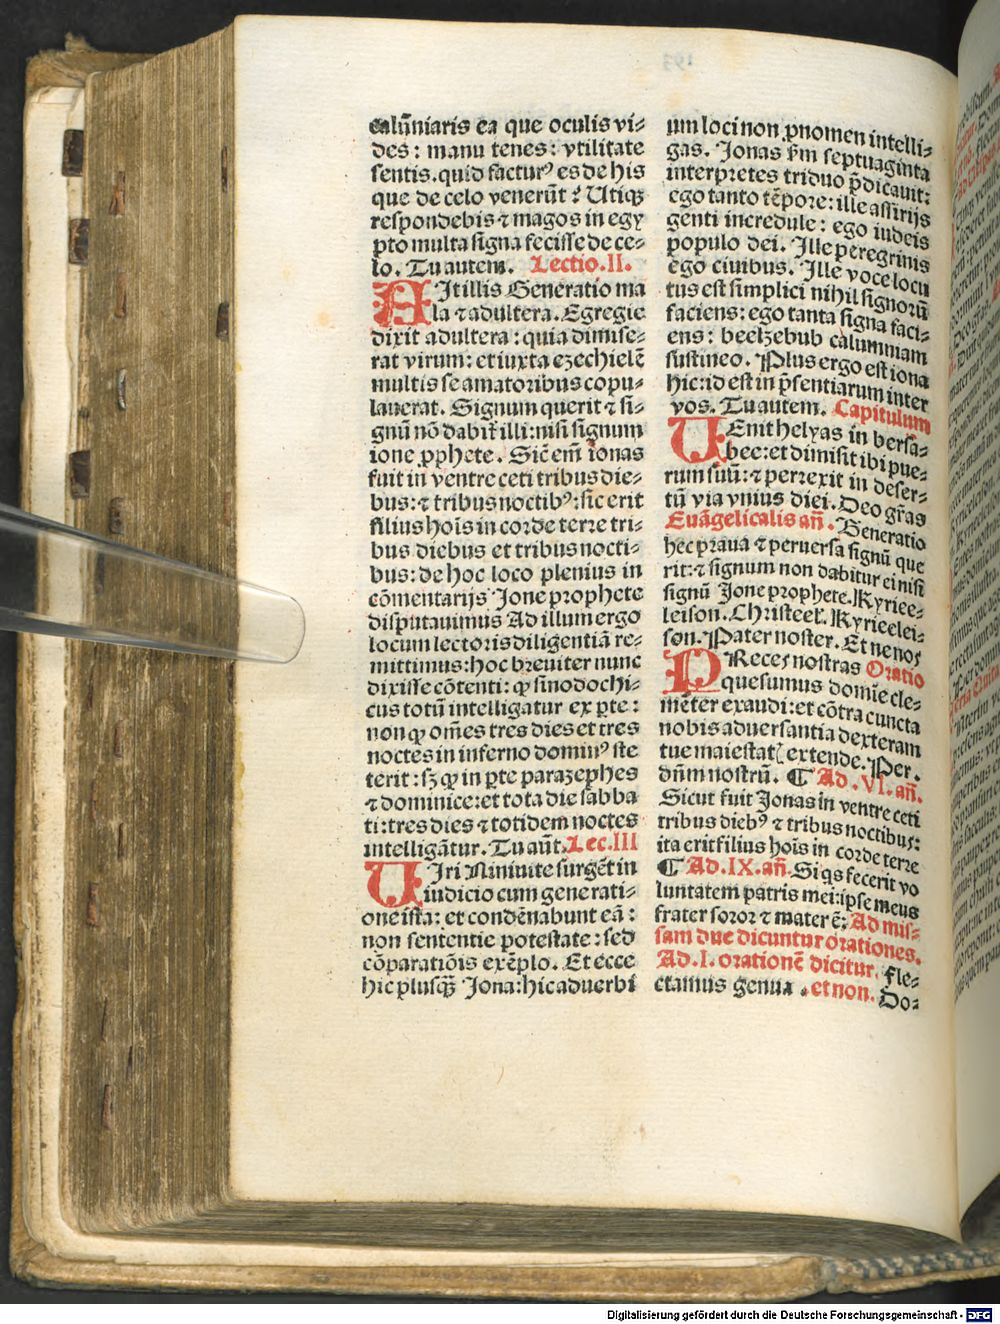 calūniaris ea que oculis vi⸗
des: manu tenes: vtilitate
sentis. quid facturꝰ es de his
que de celo venerūt? Utiqꝫ
respondebis ⁊ magos in egy
pto multa signa fecisse de ce⸗
lo. Tu autem. Lectio. II.
AIt illis Generatio ma
la ⁊ adultera. Egregie
dixit adultera: quia dimise⸗
rat virum: et iuxta ezechielē
multis se amatoribus copu⸗
lauerat. Signum querit ⁊ si⸗
gnū nō dabit̄ illi: nisi signum
ione ꝓphete. Sic em̄ ionas
fuit in ventre ceti tribus die⸗
bus: ⁊ tribus noctibꝰ: sic erit
filius hoīs in corde terre tri⸗
bus diebus et tribus nocti⸗
bus: de hoc loco plenius in
cōmentarijs Ione prophete
disputauimus Ad illum ergo
locum lectoris diligentiā re⸗
mittimus: hoc breuiter nunc
dixisse cōtenti: ꝙ sinodochi⸗
cus totū intelligatur ex ꝑte:
non ꝙ om̄es tres dies et tres
noctes in inferno dominꝰ ste
terit: sꝫ ꝙ in ꝑte parazephes
⁊ dominice: et tota die sabba
ti: tres dies ⁊ totidem noctes
intelligātur. Tu aūt. Lec. III
UIri Niniuite surgēt in
iudicio cum generati⸗
one ista: et condēnabunt eā:
non sententie potestate: sed
cōparatiōis exēplo. Et ecce
hic plusqꝫ Iona: hic aduerbi
um loci non ꝓnomen intelli⸗
gas. Ionas ẜm septuaginta
interpretes triduo p̄dicauit:
ego tanto tēpore: ille assirijs
genti incredule: ego iudeis
populo dei. Ille peregrinis
ego ciuibus. Ille voce locu
tus est simplici nihil signorū
faciens: ego tanta signa faci⸗
ens: beelzebub calumniam
sustineo. Plus ergo est iona
hic: id est in p̄sentiarum inter
vos. Tu autem. Capitulum
UEnit helyas in bersa⸗
bee: et dimisit ibi pue⸗
rum suū: ⁊ perrexit in deser⸗
tū via vnius diei. Deo gr̄as
Euāgelicalis añ. Generatio
hec praua ⁊ peruersa signū que
rit: ⁊ signum non dabitur ei nisi
signū Ione prophete. Kyriee⸗
leison. Christeel̄. Kyrieelei⸗
son. Pater noster. Et ne nos
PReces nostras Oratio
quesumus domīe cle⸗
mēter exaudi: et cōtra cuncta
nobis aduersantia dexteram
tue maiestatꝭ extende. Per.
dn̄m nostrū. ¶ Ad. VI. añ.
Sicut fuit Ionas in ventre ceti
tribus diebꝰ ⁊ tribus noctibus:
ita erit filius hoīs in corde terre
¶ Ad. IX. añ. Si qs fecerit vo
luntatem patris mei: ipse meus
frater soror ⁊ mater ē: Ad mis⸗
sam due dicuntur orationes.
Ad. I. orationē dicitur. Fle⸗
ctamus genua. et non. Do⸗
Digitalisierung gefördert durch die Deutsche Forschungsgemeinschaft - DFG